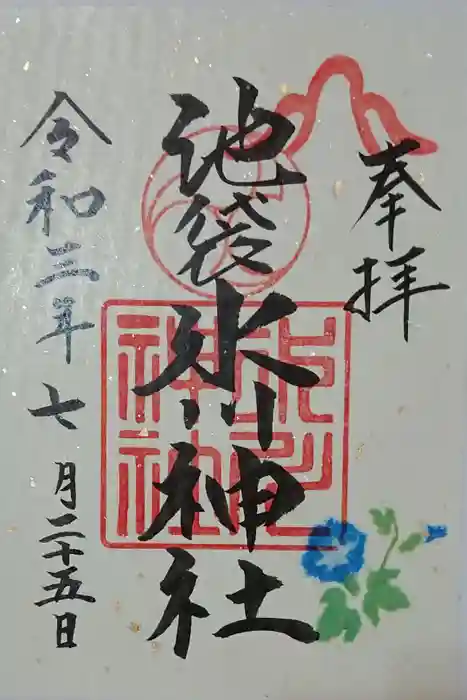 奉拝
池袋氷川神社
令和三年七月二十五日
氷川
神社